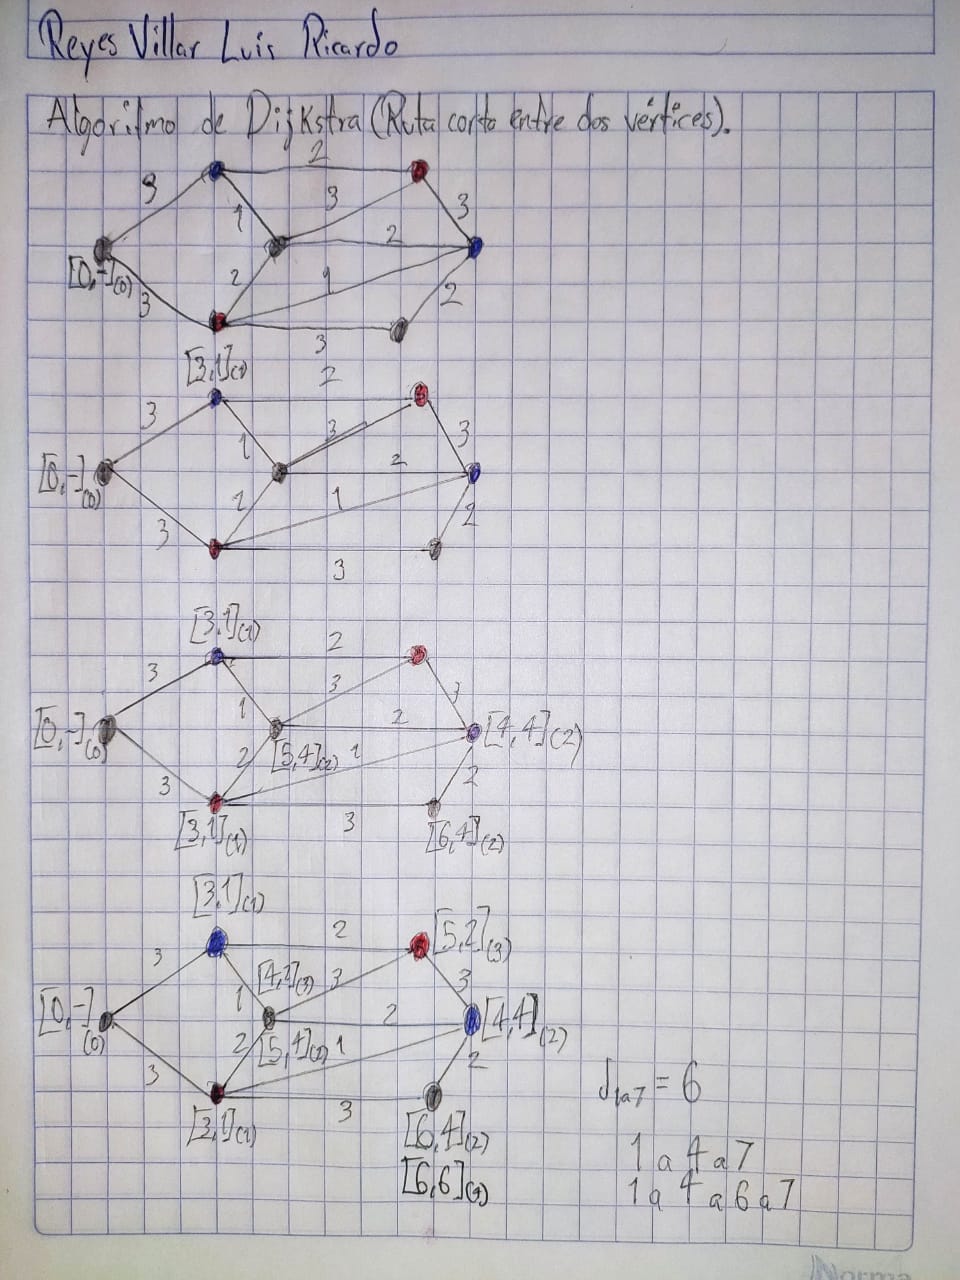 Reyes Villar Luis Ricardo
Algoritmo de Dijkstra (Ruta corta entre dos vértices).
2
3 3
1 3
2
[0,-](0)
2 1
3 2
3
[3,1](1)
2
3 3 3
1
2
[0,-](0)
2 1
3 2
3
[3,1](1)
2
3 3
1 3
2
[0,-](0) [4,4](2)
2 [5,4](2) 1
3 2
3
[3,1](1) [6,4](2)
[3,1](1)
2 [5,2](3)
3 [4,2](3) 3 3
1
[0,-](0) 2 [4,4](2)
2 [5,4](2) 1
3 2
3
[3,1](1) [6,4](2)
[6,6](3)
d1a7 = 6
1 a 4 a 7
1 a 4 a 6 a 7